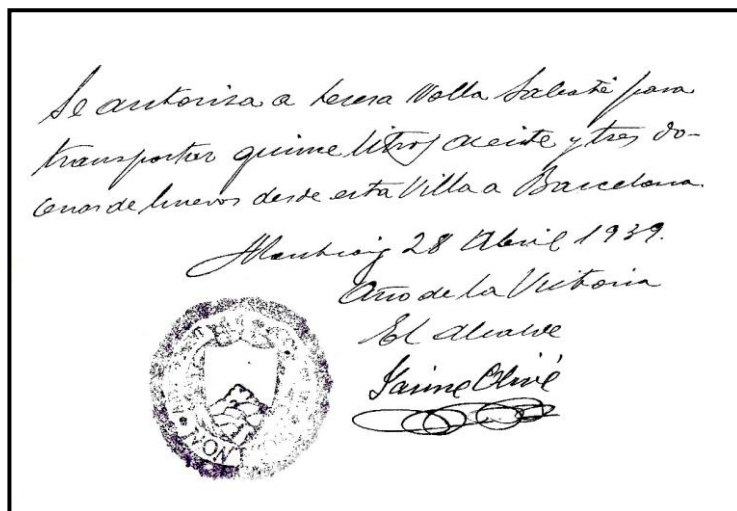 Se autoriza a teresa Nolla Sabaté para
transportar quince litros aceite y tres do-
cenas de huevos desde esta Villa a Barcelona.
Montroig 28 Abril 1939.
Año de la Victoria
El Alcalde
Jaime Olivé